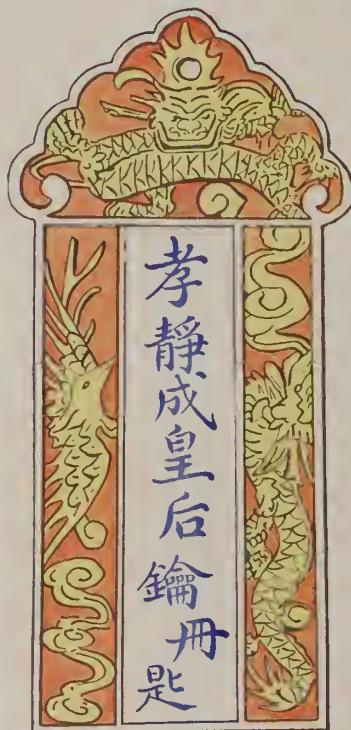 孝靜成皇后鑰冊匙